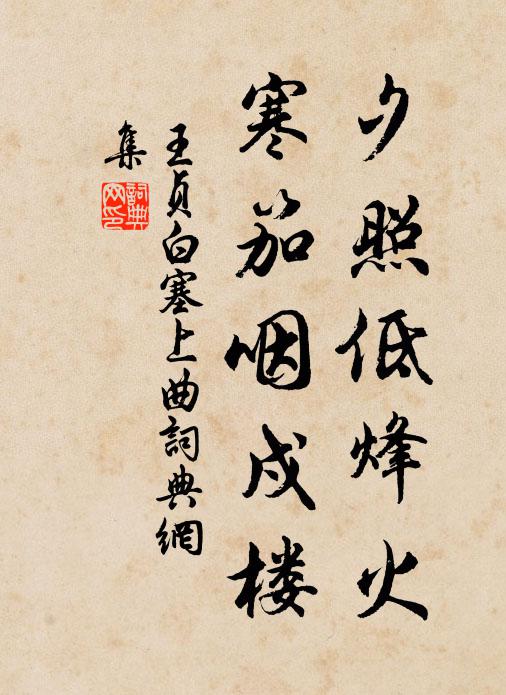 夕照低烽火
寒笳咽戍楼
王贞白塞上曲詞典網
集
詞典
网印